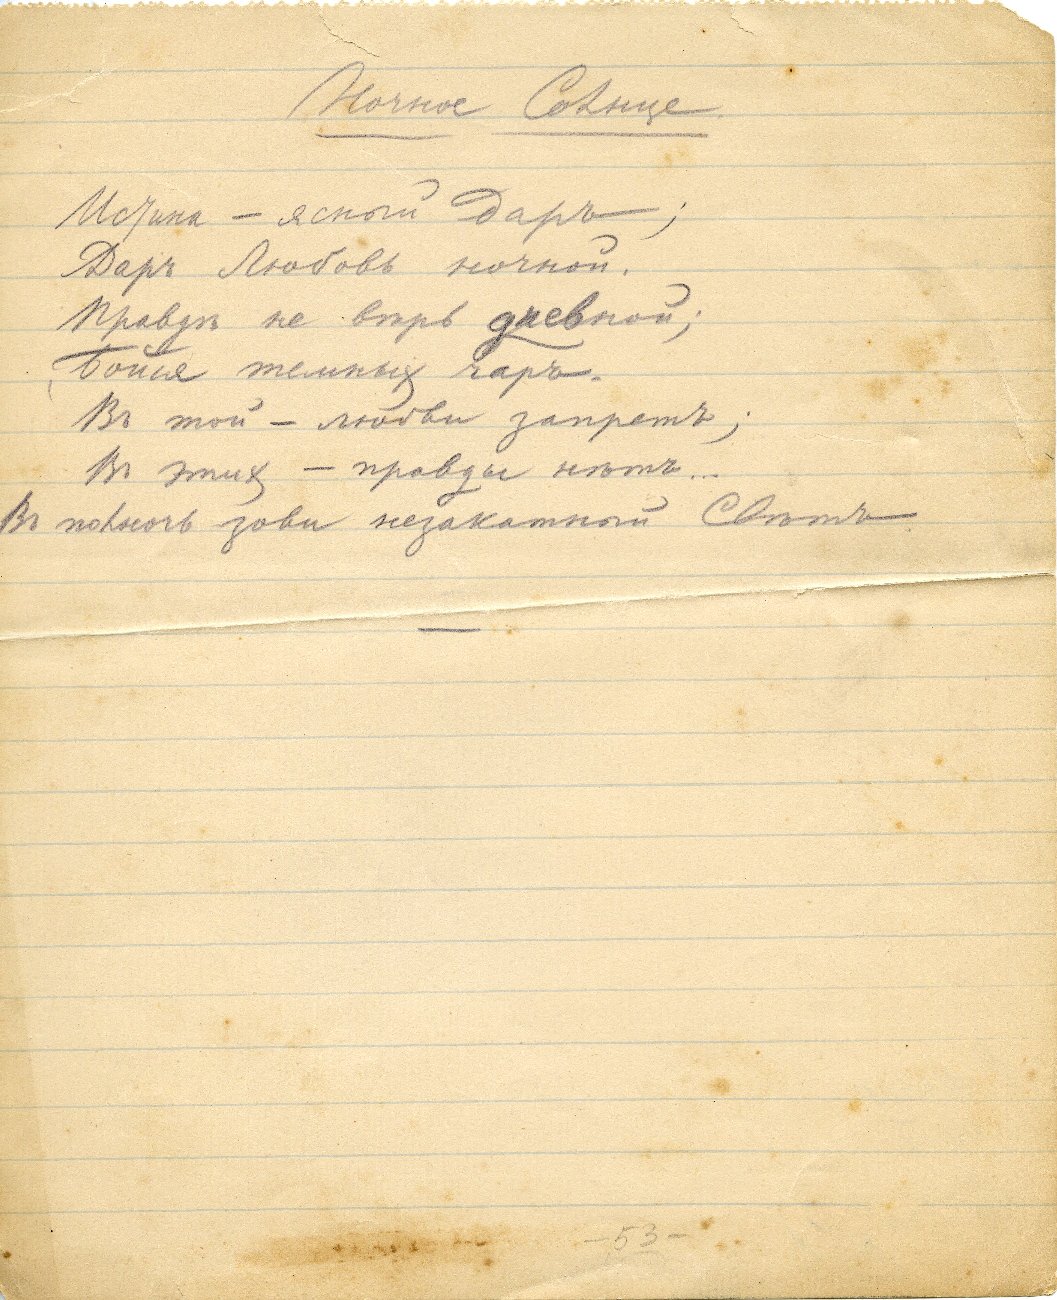 Ночное Солнце.
Истина – ясный Даръ;
Даръ Любовь ночной.
Правдѣ не вѣрь дневной;
Бойся темных чаръ.
Въ той – любви запретъ;
Въ этих – правды нѣтъ...
Въ полночь зови незакатный Свѣтъ
—
–53–